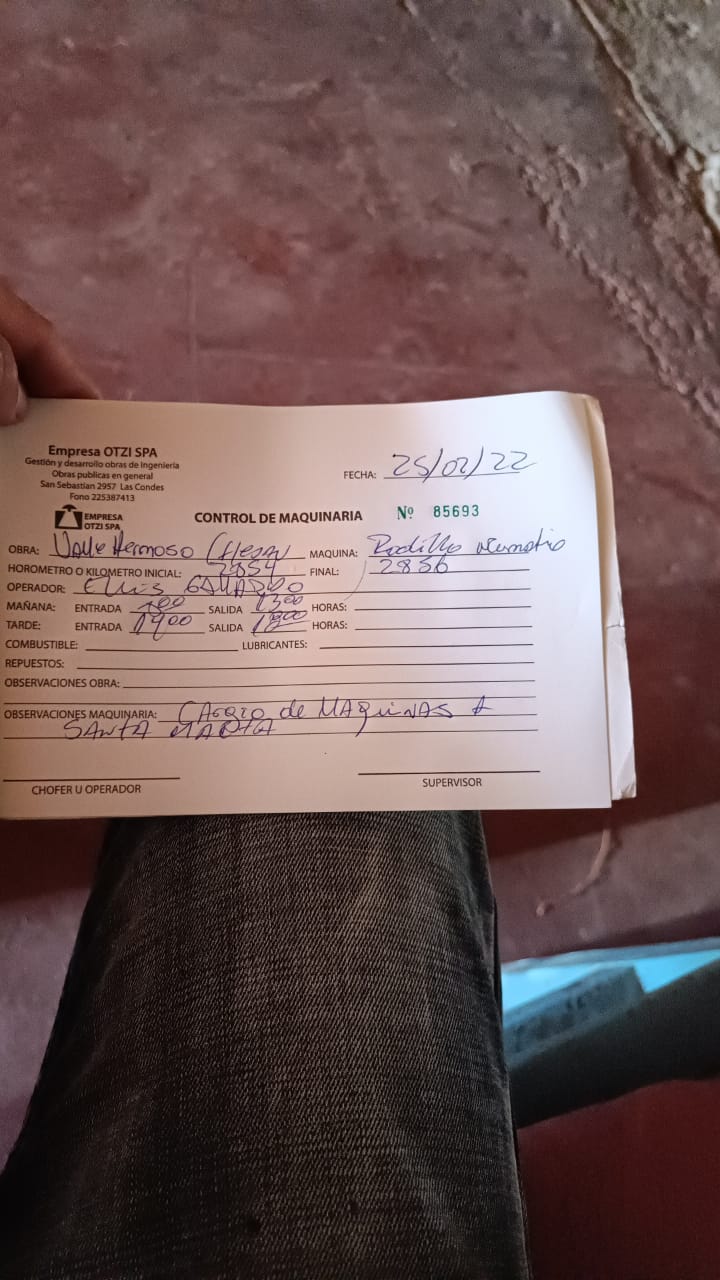 Empresa OTZI SPA
Gestión y desarrollo obras de Ingeniería
Obras publicas en general
San Sebastian 2957 Las Condes
Fono 225387413
FECHA: 25/02/22
EMPRESA
OTZI SPA
CONTROL DE MAQUINARIA Nº 85693
OBRA: Valle Hermoso MAQUINA: Rodillo
HOROMETRO O KILOMETRO INICIAL: 2854 FINAL: 2856
OPERADOR:
MAÑANA: ENTRADA 800 SALIDA 1300 HORAS:
TARDE: ENTRADA 1400 SALIDA 1800 HORAS:
COMBUSTIBLE: LUBRICANTES:
REPUESTOS:
OBSERVACIONES OBRA:
OBSERVACIONES MAQUINARIA: de MAQUINAS A
SANTA MARIA
CHOFER U OPERADOR SUPERVISOR